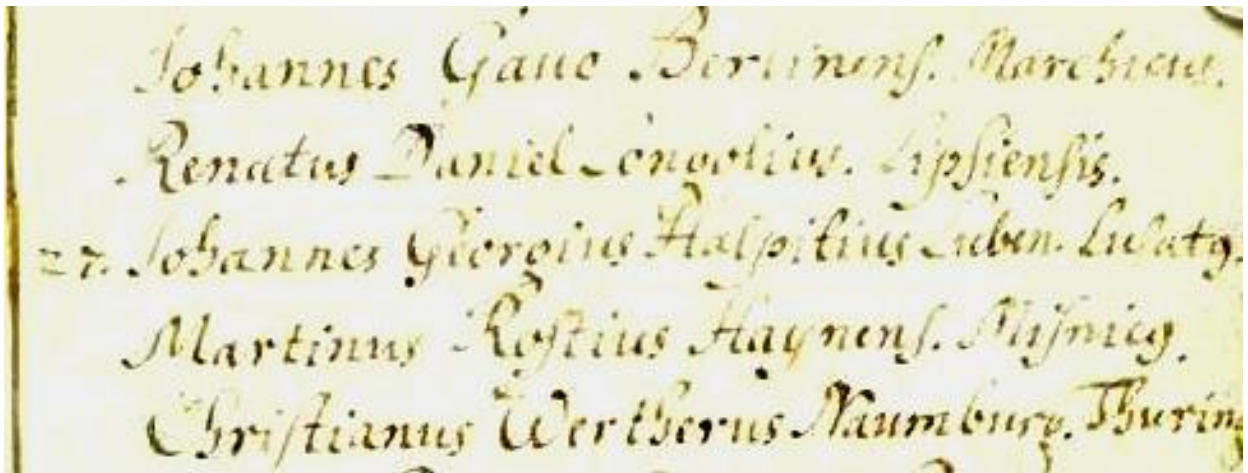 Johannes Gaue Berlinens. Marchicus.
Renatus Daniel Longolius. Lipsiensis.
27. Johannes Georgius Halpitius Luben. Lusatus.
Martinus Rostius Haynens. Misnicus.
Christianus Wertherus Naumburg. Thuring